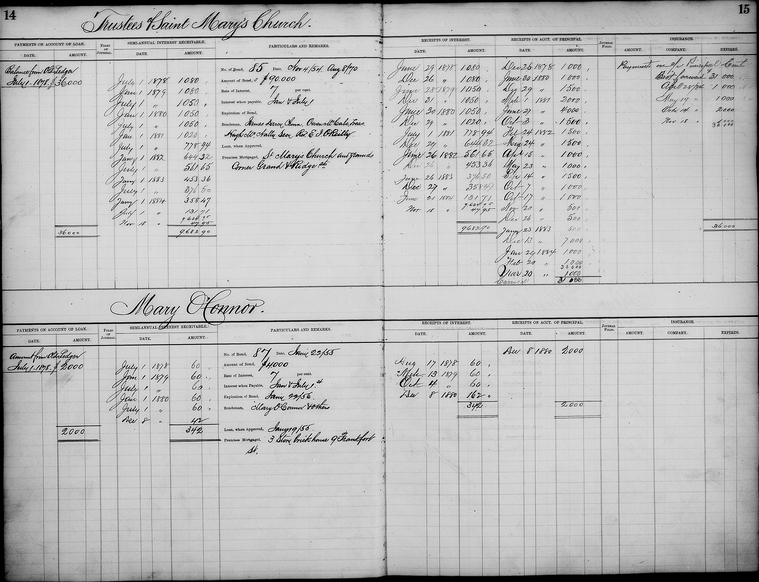 14
Trustees of Saint Mary's Church.
15
PAYMENTS ON ACCOUNT OF LOAN.
FOLIO OF JOURNAL
SEMI-ANNUAL INTEREST RECEIVABLE.
PARTICULARS AND REMARKS.
DATE. AMOUNT.
DATE. AMOUNT.
Balance from Old Ledger
July 1. 1878. 36000
36000
July 1 1878 1080
Jan 1 1879 1080
July 1 " 1050
Jan 1 1880 1050
July 1 " 1050
Jan 1 1881 1020
July 1 " 778 94
Jany 1 1882 644 32
July 1 " 561 65
Jany 1 1883 453 36
July 1 " 376 50
Jany 1 1884 358 47
July 1 " 131 71
Nov 18 " 47 95
9682 90
No. of Bond, 85 Date, Nov 4/54. Aug 8/70
Amount of Bond, $ 90,000
Rate of Interest, 7 per cent.
Interest when payable, Jan & July 1
Expiration of Bond,
Bondsmen,
Loan, when Approved,
Premises Mortgaged, St Marys Church and grounds
Corner Grand & Ridge sts
RECEIPTS OF INTEREST.
DATE. AMOUNT.
June 29 1878 1080
Dec 26 " 1080
June 28 1879 1050
Dec 31 " 1050
June 30 1880 1050
Dec 29 " 1020
July 1 1881 778 94
Dec 29 " 644 32
June 26 1882 561 65
453 36
June 26 1883 376 50
Dec 29 " 358 47
June 30 1884 131 71
Nov 18 " 47 95
9682 90
RECEIPTS ON ACCT. OF PRINCIPAL.
DATE. AMOUNT.
Dec 26 1878 1000
June 30 1880 1000
Dec 29 " 1500
Mch 1 1881 2000
June 27 " 4000
Oct 3 " 1500
Feb 24 1882 1500
Mch 24 " 1500
Apr 15 " 1000
May 23 " 1000
Sep 14 " 1500
Oct 7 " 1000
Oct 17 " 1000
Nov 20 " 500
Dec 26 " 500
Jany 23 1883 500
Dec 13 " 7000
Jan 24 1884 1000
Feb 20 " 1000
Mar 20 " 1000
31000
FOLIO OF JOURNAL
INSURANCE.
AMOUNT. COMPANY. EXPIRES.
Payments on a/c Principal Cont
Brot forward 31 000
April 28/84 1 000
May 19 " 1 000
Oct 10 " 2000
Nov 18 "
36000
Mary O'Connor.
PAYMENTS ON ACCOUNT OF LOAN.
FOLIO OF JOURNAL
SEMI-ANNUAL INTEREST RECEIVABLE.
PARTICULARS AND REMARKS.
DATE. AMOUNT.
DATE. AMOUNT.
Amount from Old Ledger
July 1. 1878. $ 2000
2000
July 1 1878 60
Jan 1 1879 60
July 1 " 60
Jan 1 1880 60
July 1 " 60
Dec 8 " 42
342
No. of Bond, 87 Date, June 22/55
Amount of Bond, $4000
Rate of Interest, 7 per cent.
Interest when Payable, Jan & July 1st
Expiration of Bond, June 22/56
Bondsmen, Mary O'Connor & others
Loan, when Approved, Jany 19/55
Premises Mortgaged, 3 Story brick house 9 Frankfort
St.
RECEIPTS OF INTEREST.
DATE. AMOUNT.
Aug 17 1878 60
Mch 13 1879 60
Oct 4 " 60
Dec 8 1880 162
342
RECEIPTS ON ACCT. OF PRINCIPAL.
DATE. AMOUNT.
Dec 8 1880 2000
2000
FOLIO OF JOURNAL
INSURANCE.
AMOUNT. COMPANY. EXPIRES.